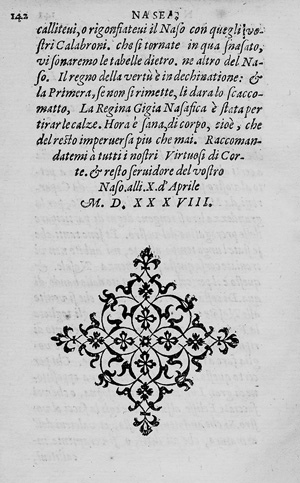 142 NASEA,
calliteui, o rigonfiateui il Naso con quegli vo-
stri Calabroni. che si tornate in qua snasato,
vi sonaremo le tabelle dietro. ne altro del Na-
so. Il regno della vertù è in declinatione: &
la Primera, se non si rimette, li dara lo scacco-
matto, La Regina Gigia Nasafica è stata per
tirar le calze. Hora è sana, di corpo, cioè, che
del resto imperuersa piu che mai. Raccoman-
datemi à tutti i nostri Virtuosi di Cor-
te. & resto seruidore del vostro
Naso. alli. X. d'Aprile
M. D. XXXVIII.